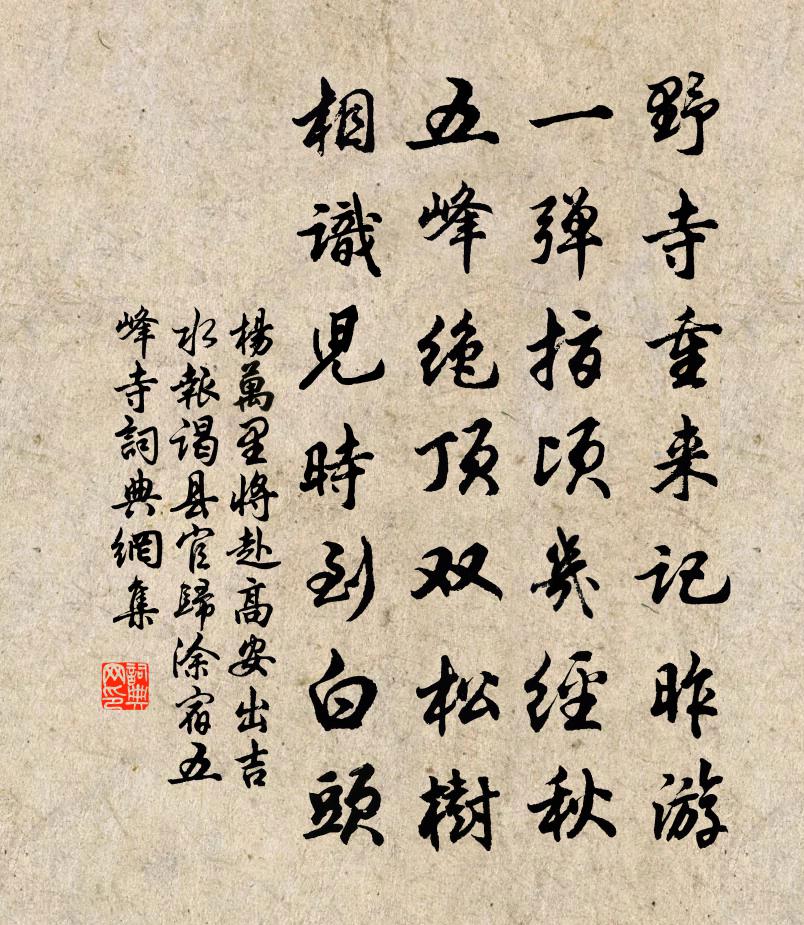 野寺重来记昨游
一弹指顷岁经秋
五峰绝顶双松树
相識児時到白頭
楊萬里將赴高安出吉
水報謁县官歸涂宿五
峰寺詞典網集
詞典网印